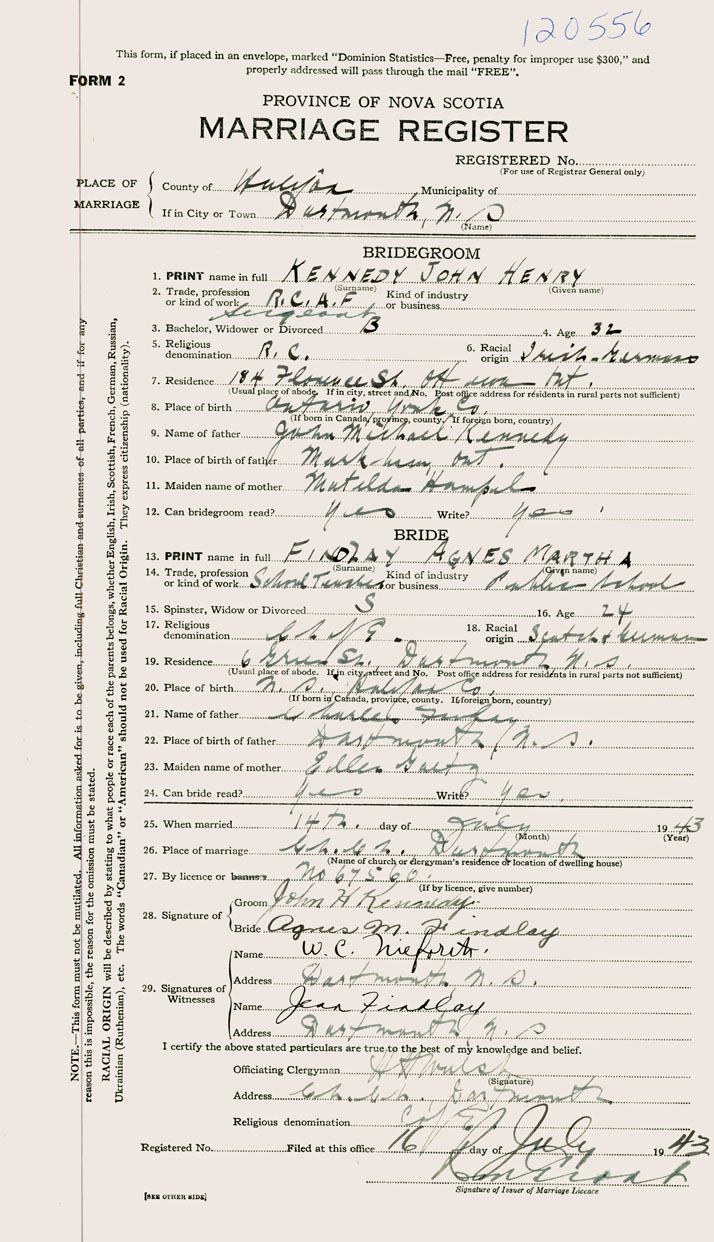 120556
This form, if placed in an envelope, marked "Dominion Statistics—Free, penalty for improper use $300," and
properly addressed will pass through the mail "FREE".
FORM 2
PROVINCE OF NOVA SCOTIA
MARRIAGE REGISTER
REGISTERED No.
(For use of Registrar General only)
PLACE OF MARRIAGE
County of Halifax Municipality of
If in City or Town Dartmouth, N. S
(Name)
BRIDEGROOM
1. PRINT name in full KENNEDY JOHN HENRY
(Surname) (Given name)
2. Trade, profession or kind of work R.C.A.F Sergeant Kind of industry or business
3. Bachelor, Widower or Divorced B 4. Age 32
5. Religious denomination R. C. 6. Racial origin Irish-German
7. Residence 184 Florence St. Ottawa Ont.
(Usual place of abode. If in city, street and No. Post office address for residents in rural parts not sufficient)
8. Place of birth Ontario, York Co.
(If born in Canada, province, county. If foreign born, country)
9. Name of father John Michael Kennedy
10. Place of birth of father Markham, Ont.
11. Maiden name of mother Matilda Hampel
12. Can bridegroom read? Yes Write? Yes
BRIDE
13. PRINT name in full FINDLAY AGNES MARTHA
(Surname) (Given name)
14. Trade, profession or kind of work School Teacher Kind of industry or business Public School
15. Spinster, Widow or Divorced S 16. Age 24
17. Religious denomination Ch. of E. 18. Racial origin Scotch & German
19. Residence 6 St. Dartmouth N. S.
(Usual place of abode. If in city, street and No. Post office address for residents in rural parts not sufficient)
20. Place of birth N. S. Halifax Co.
(If born in Canada, province, county. If foreign born, country)
21. Name of father Charles Findlay
22. Place of birth of father Dartmouth, N. S.
23. Maiden name of mother Ellen
24. Can bride read? Yes Write? Yes.
25. When married 14th. day of July 1943
(Month) (Year)
26. Place of marriage Ch. Ch. Dartmouth
(Name of church or clergyman's residence or location of dwelling house)
27. By licence or banns No 67560.
(If by licence, give number)
28. Signature of
Groom John H Kennedy.
Bride Agnes M. Findlay
29. Signatures of Witnesses
Name W. C. Nieforth.
Address Dartmouth N. S.
Name Jean Findlay
Address Dartmouth N. S
I certify the above stated particulars are true to the best of my knowledge and belief.
Officiating Clergyman Walsh
(Signature)
Address Ch. Ch. Dartmouth
Religious denomination C of E
Registered No. Filed at this office 16 day of July 1943
Signature of Issuer of Marriage Licence
[SEE OTHER SIDE]
NOTE.—This form must not be mutilated. All information asked for is to be given, including full Christian and surnames of all parties, and if for any
reason this is impossible, the reason for the omission must be stated.
RACIAL ORIGIN will be described by stating to what people or race each of the parents belongs, whether English, Irish, Scottish, French, German, Russian,
Ukrainian (Ruthenian), etc. The words "Canadian" or "American" should not be used for Racial Origin. They express citizenship (nationality).